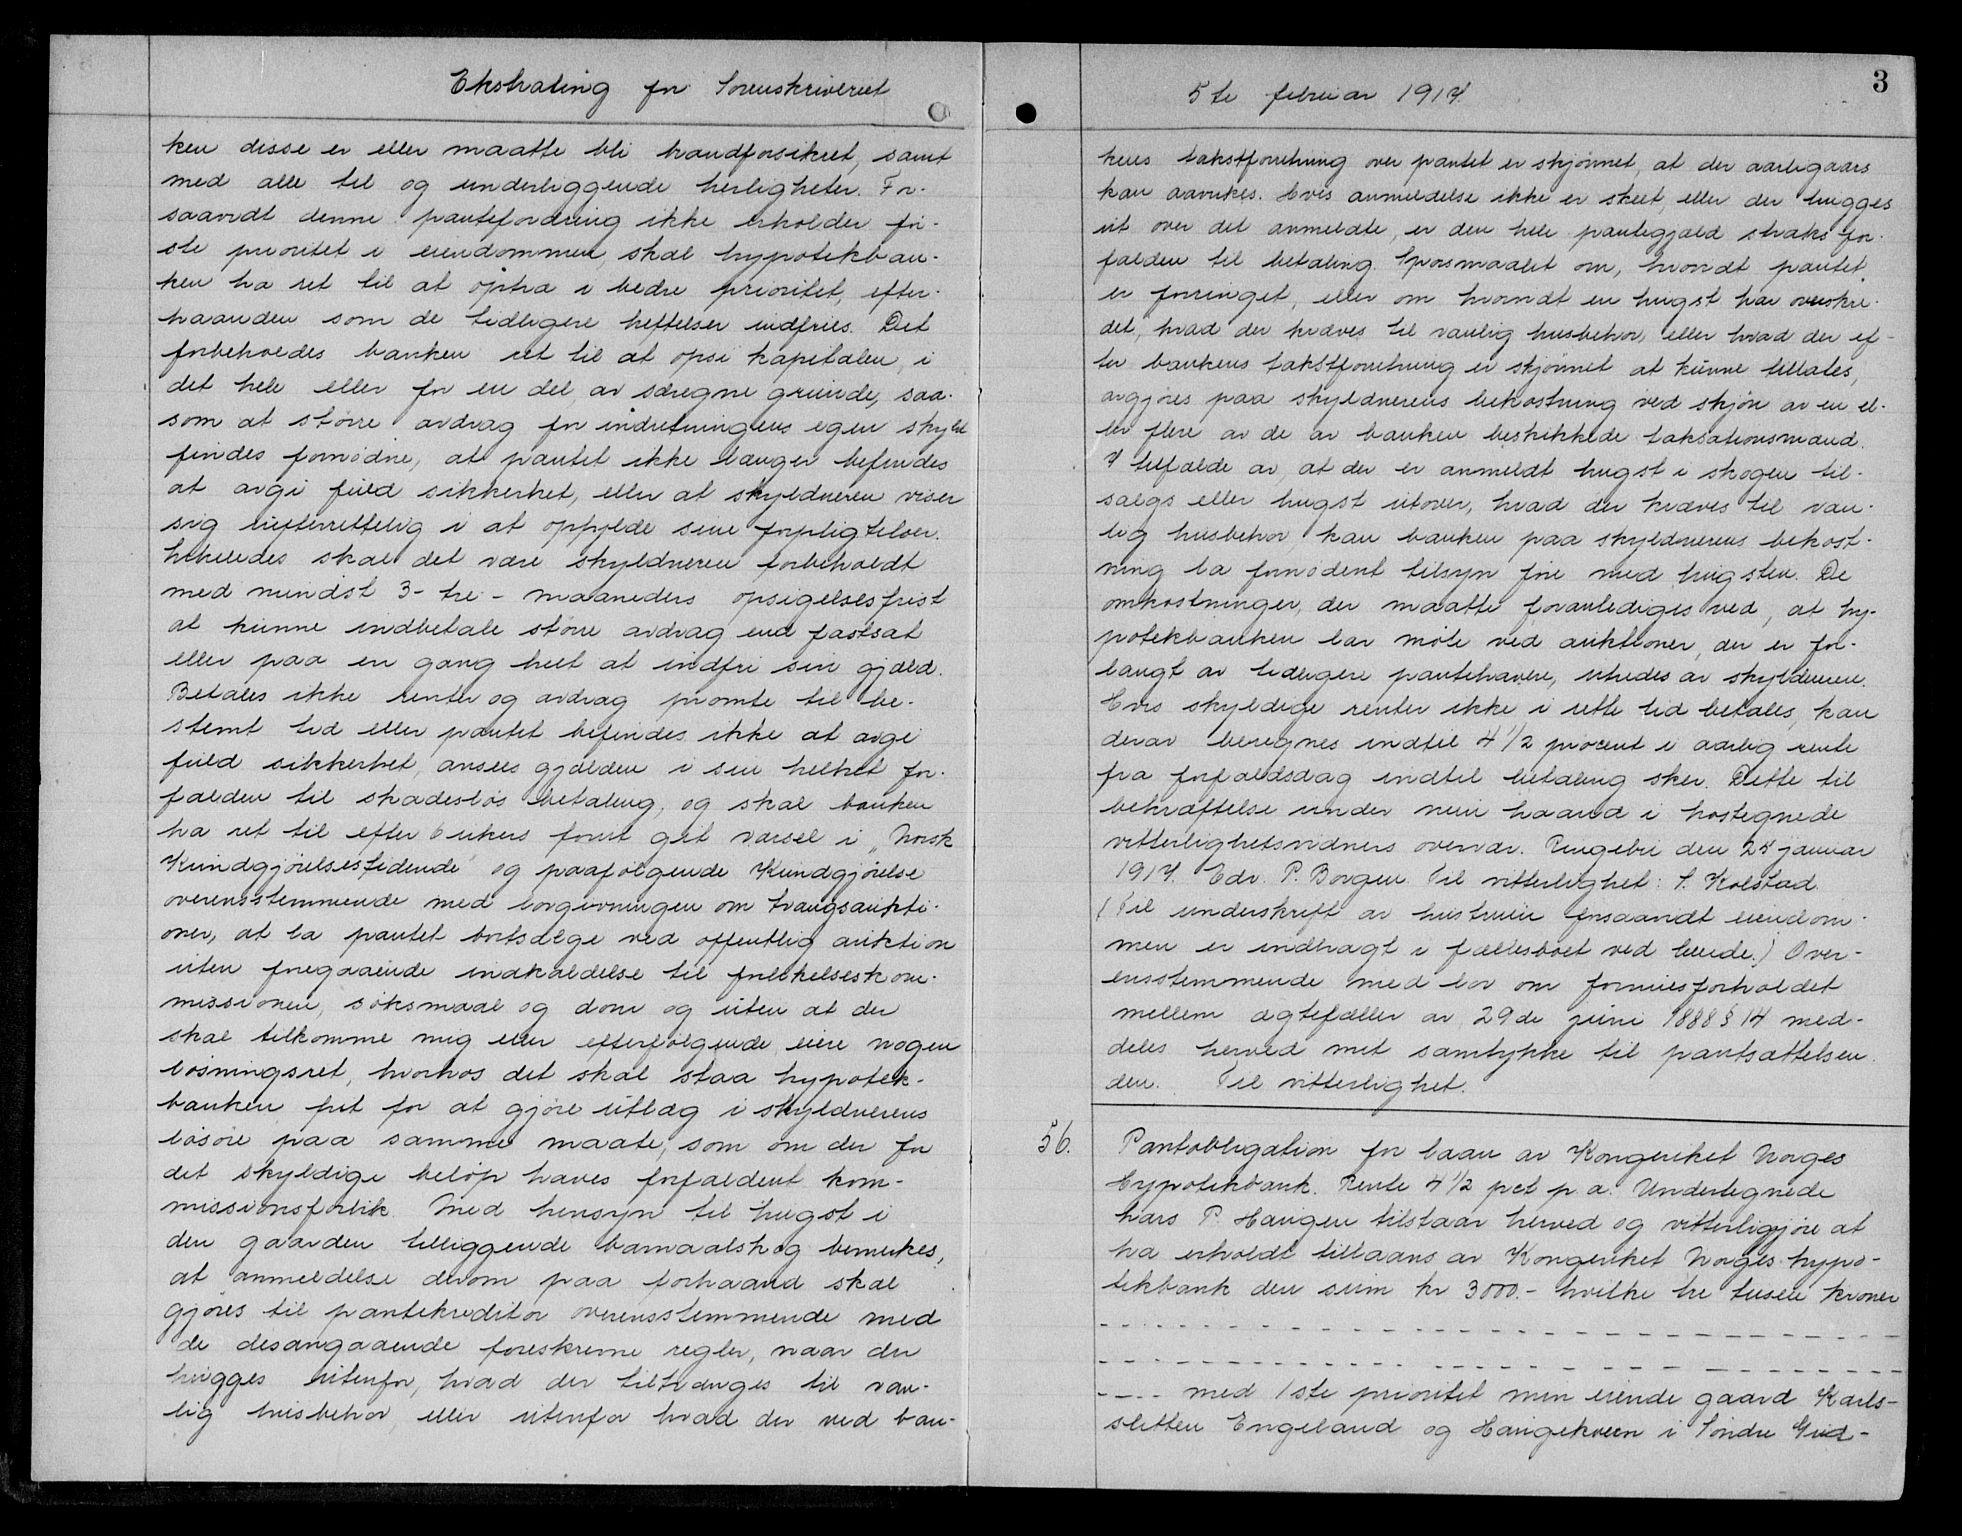 Ekstrating for Sorenskriveriet
ken disse er eller maatte bli brandforsikret, samt
med alle til og underliggende herligheter. For-
saavidt denne pantefordring ikke erholder før-
ste prioritet i eiendommen, skal hypotekban-
ken ha ret til at optra i bedre prioritet, efter-
haanden som de tidligere heftelser indfries. Det
forbeholdes banken ret til at opsi kapitalen, i
det hele eller for en del, av særegne grunde, saa-
som at større avdrag for indretningens egen skyld
findes fornødne, at pantet ikke længer befindes
at avgi fuld sikkerhet, eller at skyldneren viser
sig uefterrettelig i at opfylde sine forpligtelser.
Likeledes skal det være skyldneren forbeholdt
med mindst 3- tre - maaneders opsigelsesfrist
at kunne indbetale større avdrag end fastsat
eller paa en gang helt at indfri sin gjæld.
Betales ikke renter og avdrag promte til be-
stemt tid eller pantet befindes ikke at avgi
fuld sikkerhet, ansees gjælden i sin helhet for-
falden til skadesløs betaling, og skal banken
ha ret til efter 6 ukers forut git varsel i „Norsk
Kundgjørelsestidende" og paafølgende Kundgjørelse
overensstemmende med lovgivningen om tvangsaukti-
oner, at la pantet bortsælge ved offentlig auktion
uten foregaaende indkaldelse til forlikelseskom-
missionen, søksmaal og dom og uten at der
skal tilkomme mig eller efterfølgende eiere nogen
løsningsret, hvorhos det skal staa hypotek-
banken frit for at gjøre utlæg i skyldnerens
løsøre paa samme maate, som om der for
det skyldige beløp haves forfaldent kom-
missionsforlik. Med hensyn til hugst i
den gaarden tilliggende barnaalskog bemerkes,
at anmeldelse derom paa forhaand skal
gjøres til pantekreditor overensstemmende med
de desangaaende foreskrevne regler, naar der
hugges utenfor, hvad der tiltrænges til van-
lig husbehov, eller utenfor hvad der ved ban-
5te februar 1917.
3
kens takstforretning over pantet er skjønnet, at der aarligaars
kan aavirkes. Hvis anmeldelse ikke er skeet, eller der hugges
ut over det anmeldte, er den hele pantegjæld straks for-
falden til betaling. Spørsmaalet om, hvorvidt pantet
er forringet, eller om hvorvidt en hugst har overskre-
det, hvad der kræves til vanlig husbehov, eller hvad der ef-
ter bankens takstforretning er skjønnet at kunne tillates,
avgjøres paa skyldnerens bekostning ved skjøn av en el-
ler flere av de av banken beskikkede taksationsmænd.
I tilfælde av, at der er anmeldt hugst i skogen til-
salgs eller hugst utover, hvad der kræves til van-
lig husbehov kan banken paa skyldnerens bekost-
ning la fornødent tilsyn føre med hugsten. De
omkostninger, der maatte foranlediges ved, at hy-
potekbanken lar møte ved auktioner, der er for-
langt av tidligere pantehavere, utredes av skyldneren.
Hvis skyldige renter ikke i rette tid betales, kan
derav beregnes indtil 4 1/2 procent i aarlig rente
fra forfaldsdag indtil betaling sker. Dette til
bekræftelse under min haand i hostegnede
vitterlighetsvidners overvær. Ringebu den 24 januar
1917. Edv. P. Borgen. Til vitterlighet: S. Kolstad.
(Til underskrift av hustruen forsaavidt eiendom-
men er indbragt i fællesboet ved hende.) Over-
ensstemmende med lov om formuesforholdet
mellem ægtefæller av 29de juni 1888 § 14 med-
deles herved mit samtykke til pantsættelsen.
den. Til vitterlighet.
56. Pantobligation for laan av Kongeriket Norges
Hypotekbank. Rente 4 1/2 pct p.a. Undertegnede
Hans P. Haugen tilstaar herved og vitterliggjøre at
ha erholdt tillaans av Kongeriket Norges hypo-
tekbank den sum kr 3000.- hvilke tre tusen kroner
- - - - - - - - - - - - - - - - - - - -
- - - - - - - - - - - - - - - - - - - -
- - - - med 1ste prioritet min eiende gaard Karls-
sletten Engeland og Haugekveen i Søndre Gud-